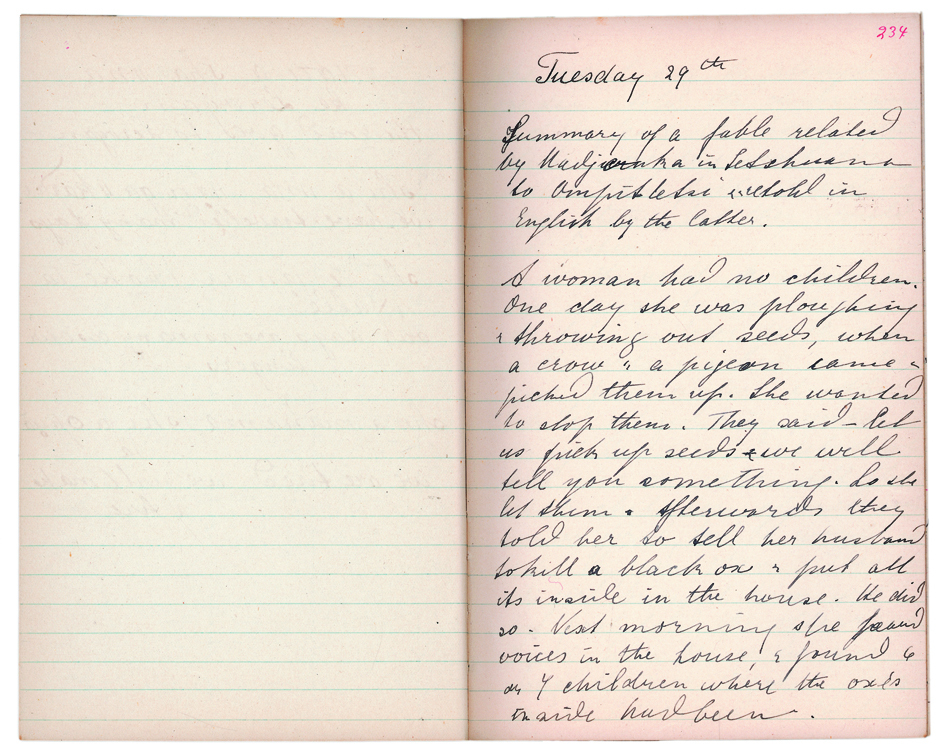 234
Tuesday 29th
Summary of a fable related
by in Setchuana
to Ompitletsi & retold in
English by the latter.
A woman had no children.
One day she was ploughing
& throwing out seeds, when
a crow & a pigeon came &
picked them up. She wanted
to stop them. They said – let
us pick up seeds & we will
tell you something. So she
let them. Afterwards they
told her to tell her husband
to kill a black ox & put all
its inside in the house. He did
so. Next morning she heard
voices in the house, & found 6
or 7 children where the ox's
inside had been.